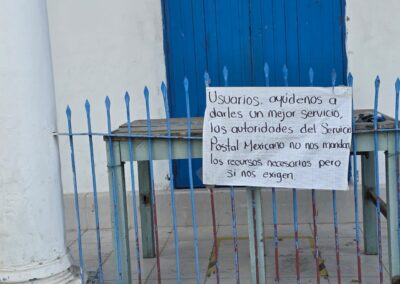 Usuarios, ayúdenos a
darles un mejor servicio,
las autoridades del Servicio
Postal Mexicano no nos mandan
los recursos necesarios pero
si nos exigen